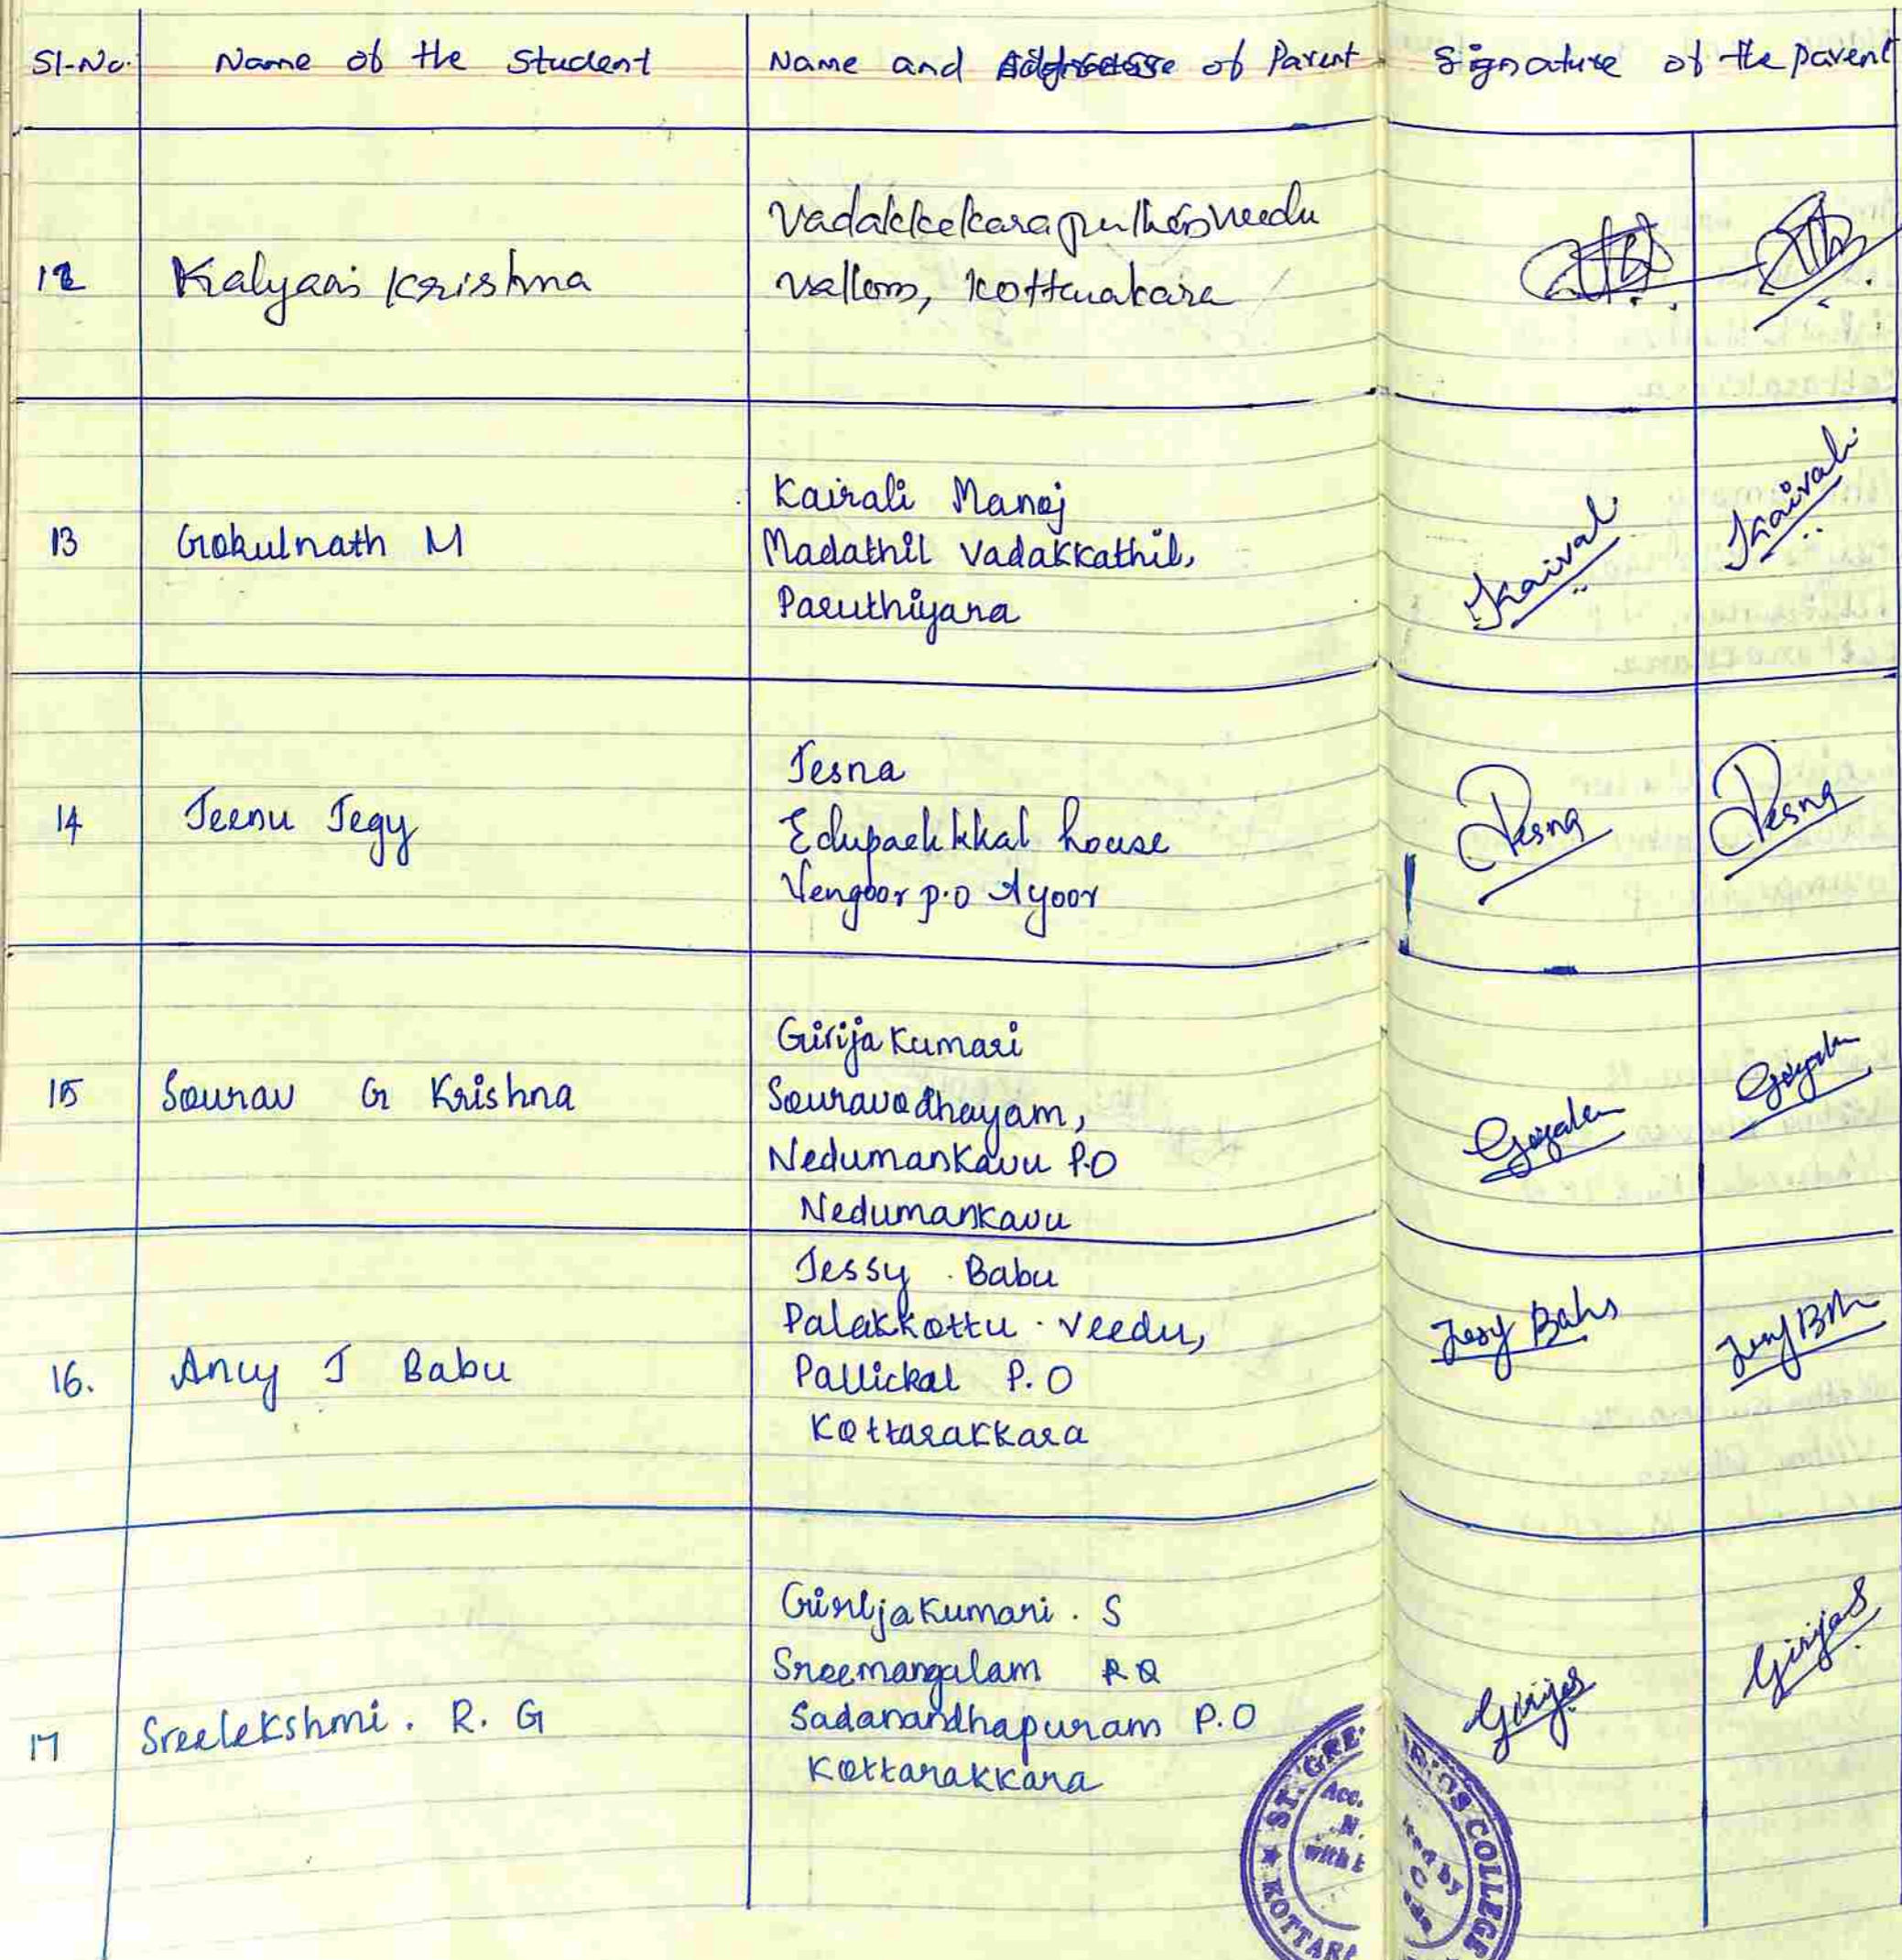 Sl-No. Name of the Student Name and Address of Parent Signature of the parent
12 Kalyani Krishna
Vadakkekaraputhenveedu
Vallom, Kottarakara
13 Gokulnath M
Kairali Manoj
Madathil Vadakkathil,
Paruthiyara
Kairali Kairali
14 Jeenu Jegy
Jesna
house
Vengoor p.o Ayoor
Jesna Jesna
15 Sourav G Krishna
Girija Kumari
Souravodhayam,
Nedumankavu P.O
Nedumankavu
16. Ancy J Babu
Jessy . Babu
Palakkottu . Veedu,
Pallickal P.O
Kottarakkara
Jesy Babu
17 Sreelekshmi . R. G
Girija Kumari . S
Sreemangalam
Sadanandhapuram P.O
Kottarakkara
Girija S Girija S
ST. GRE
ARIOS COLLEGE
Acc.
N.
with
by
C
KOTTAR